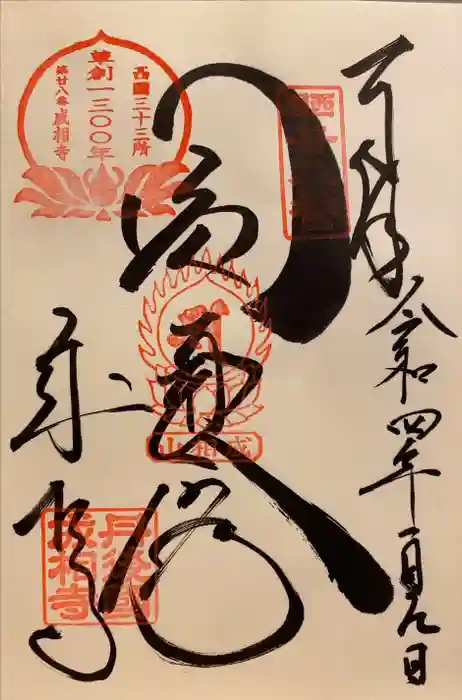 奉拝
令和四年一月九日
西國三十三所
草創一三〇〇年
第廿八番 成相寺
圓通閣
成相山
成相寺
丹後國
成相寺